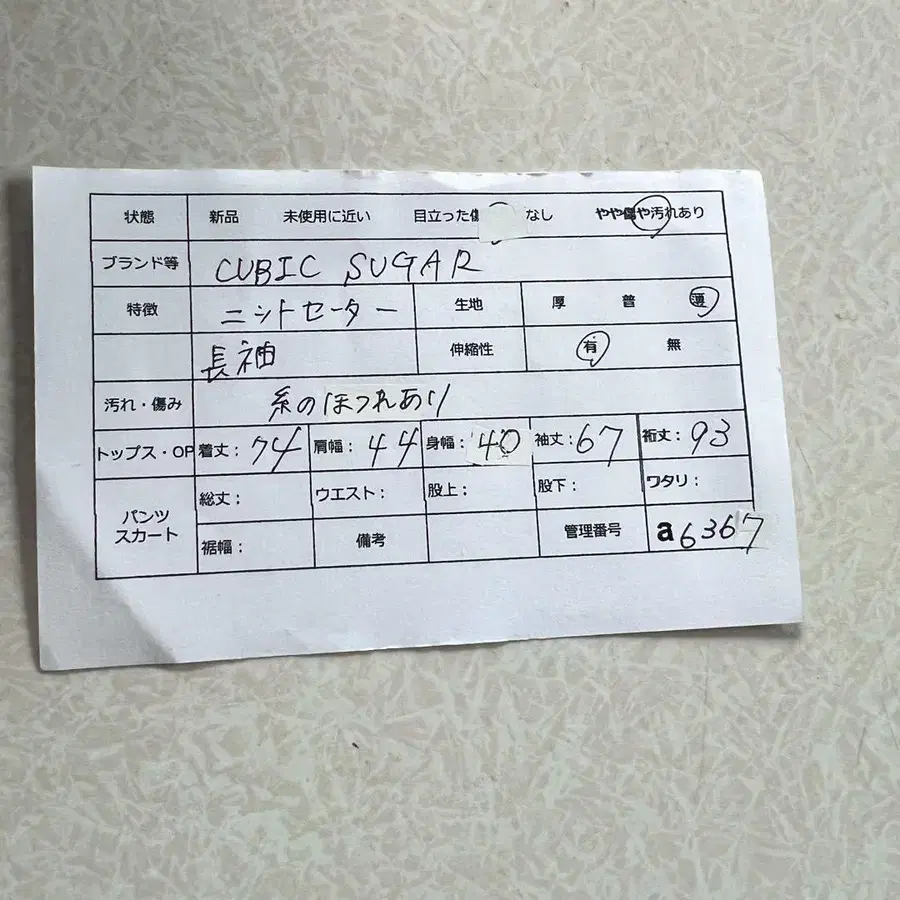 状態 新品 未使用に近い 目立った傷 なし やや傷や汚れあり
ブランド等 CUBIC SUGAR
特徴 ニットセーター 生地 厚 普 薄
長袖 伸縮性 有 無
汚れ・傷み 糸のほつれあり
トップス・OP 着丈：74 肩幅：44 身幅：40 袖丈：67 裄丈：93
パンツ スカート 総丈： ウエスト： 股上： 股下： ワタリ：
裾幅： 備考 管理番号 a6367